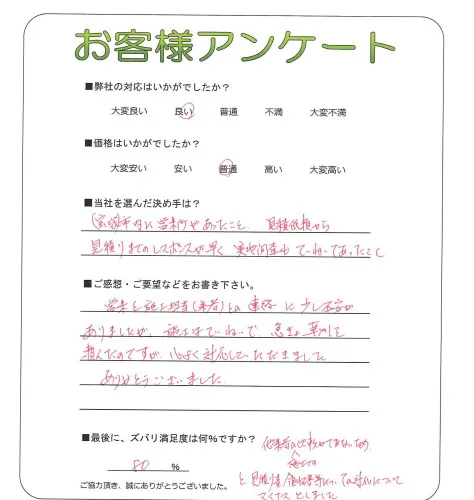 お客様アンケート
■弊社の対応はいかがでしたか？
大変良い 良い 普通 不満 大変不満
■価格はいかがでしたか？
大変安い 安い 普通 高い 大変高い
■当社を選んだ決め手は？
宝塚市内に営業所があったこと、見積依頼から
見積りまでのレスポンスが早く実地調査も ていねいであったこと
■ご感想・ご要望などをお書き下さい。
営業と施工担当(業者)との連絡に少し不安が
ありましたが、施工はていねいで、急きょ 草刈を
頼んだのですが、心よく対応していただきました
ありがとうございました。
■最後に、ズバリ満足度は何%ですか？
80 %
他業者の比較ができないため
と、見積り書 についての対応について
マイナスとしました
ご協力頂き、誠にありがとうございました。